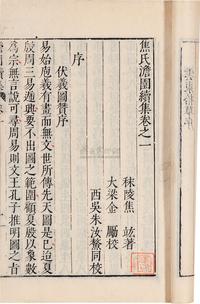 焦氏澹園續集卷之一
秣陵焦　竑著
大梁金　勵校
西吳朱汝鰲同校
序
伏羲圖贊序
易始庖羲有畫而無文世所傳先天圖是已迨夏
殷周三易遞興要不出圖之範圍顧夏殷以象數
為宗無言說可尋周易則文王孔子推明圖之旨